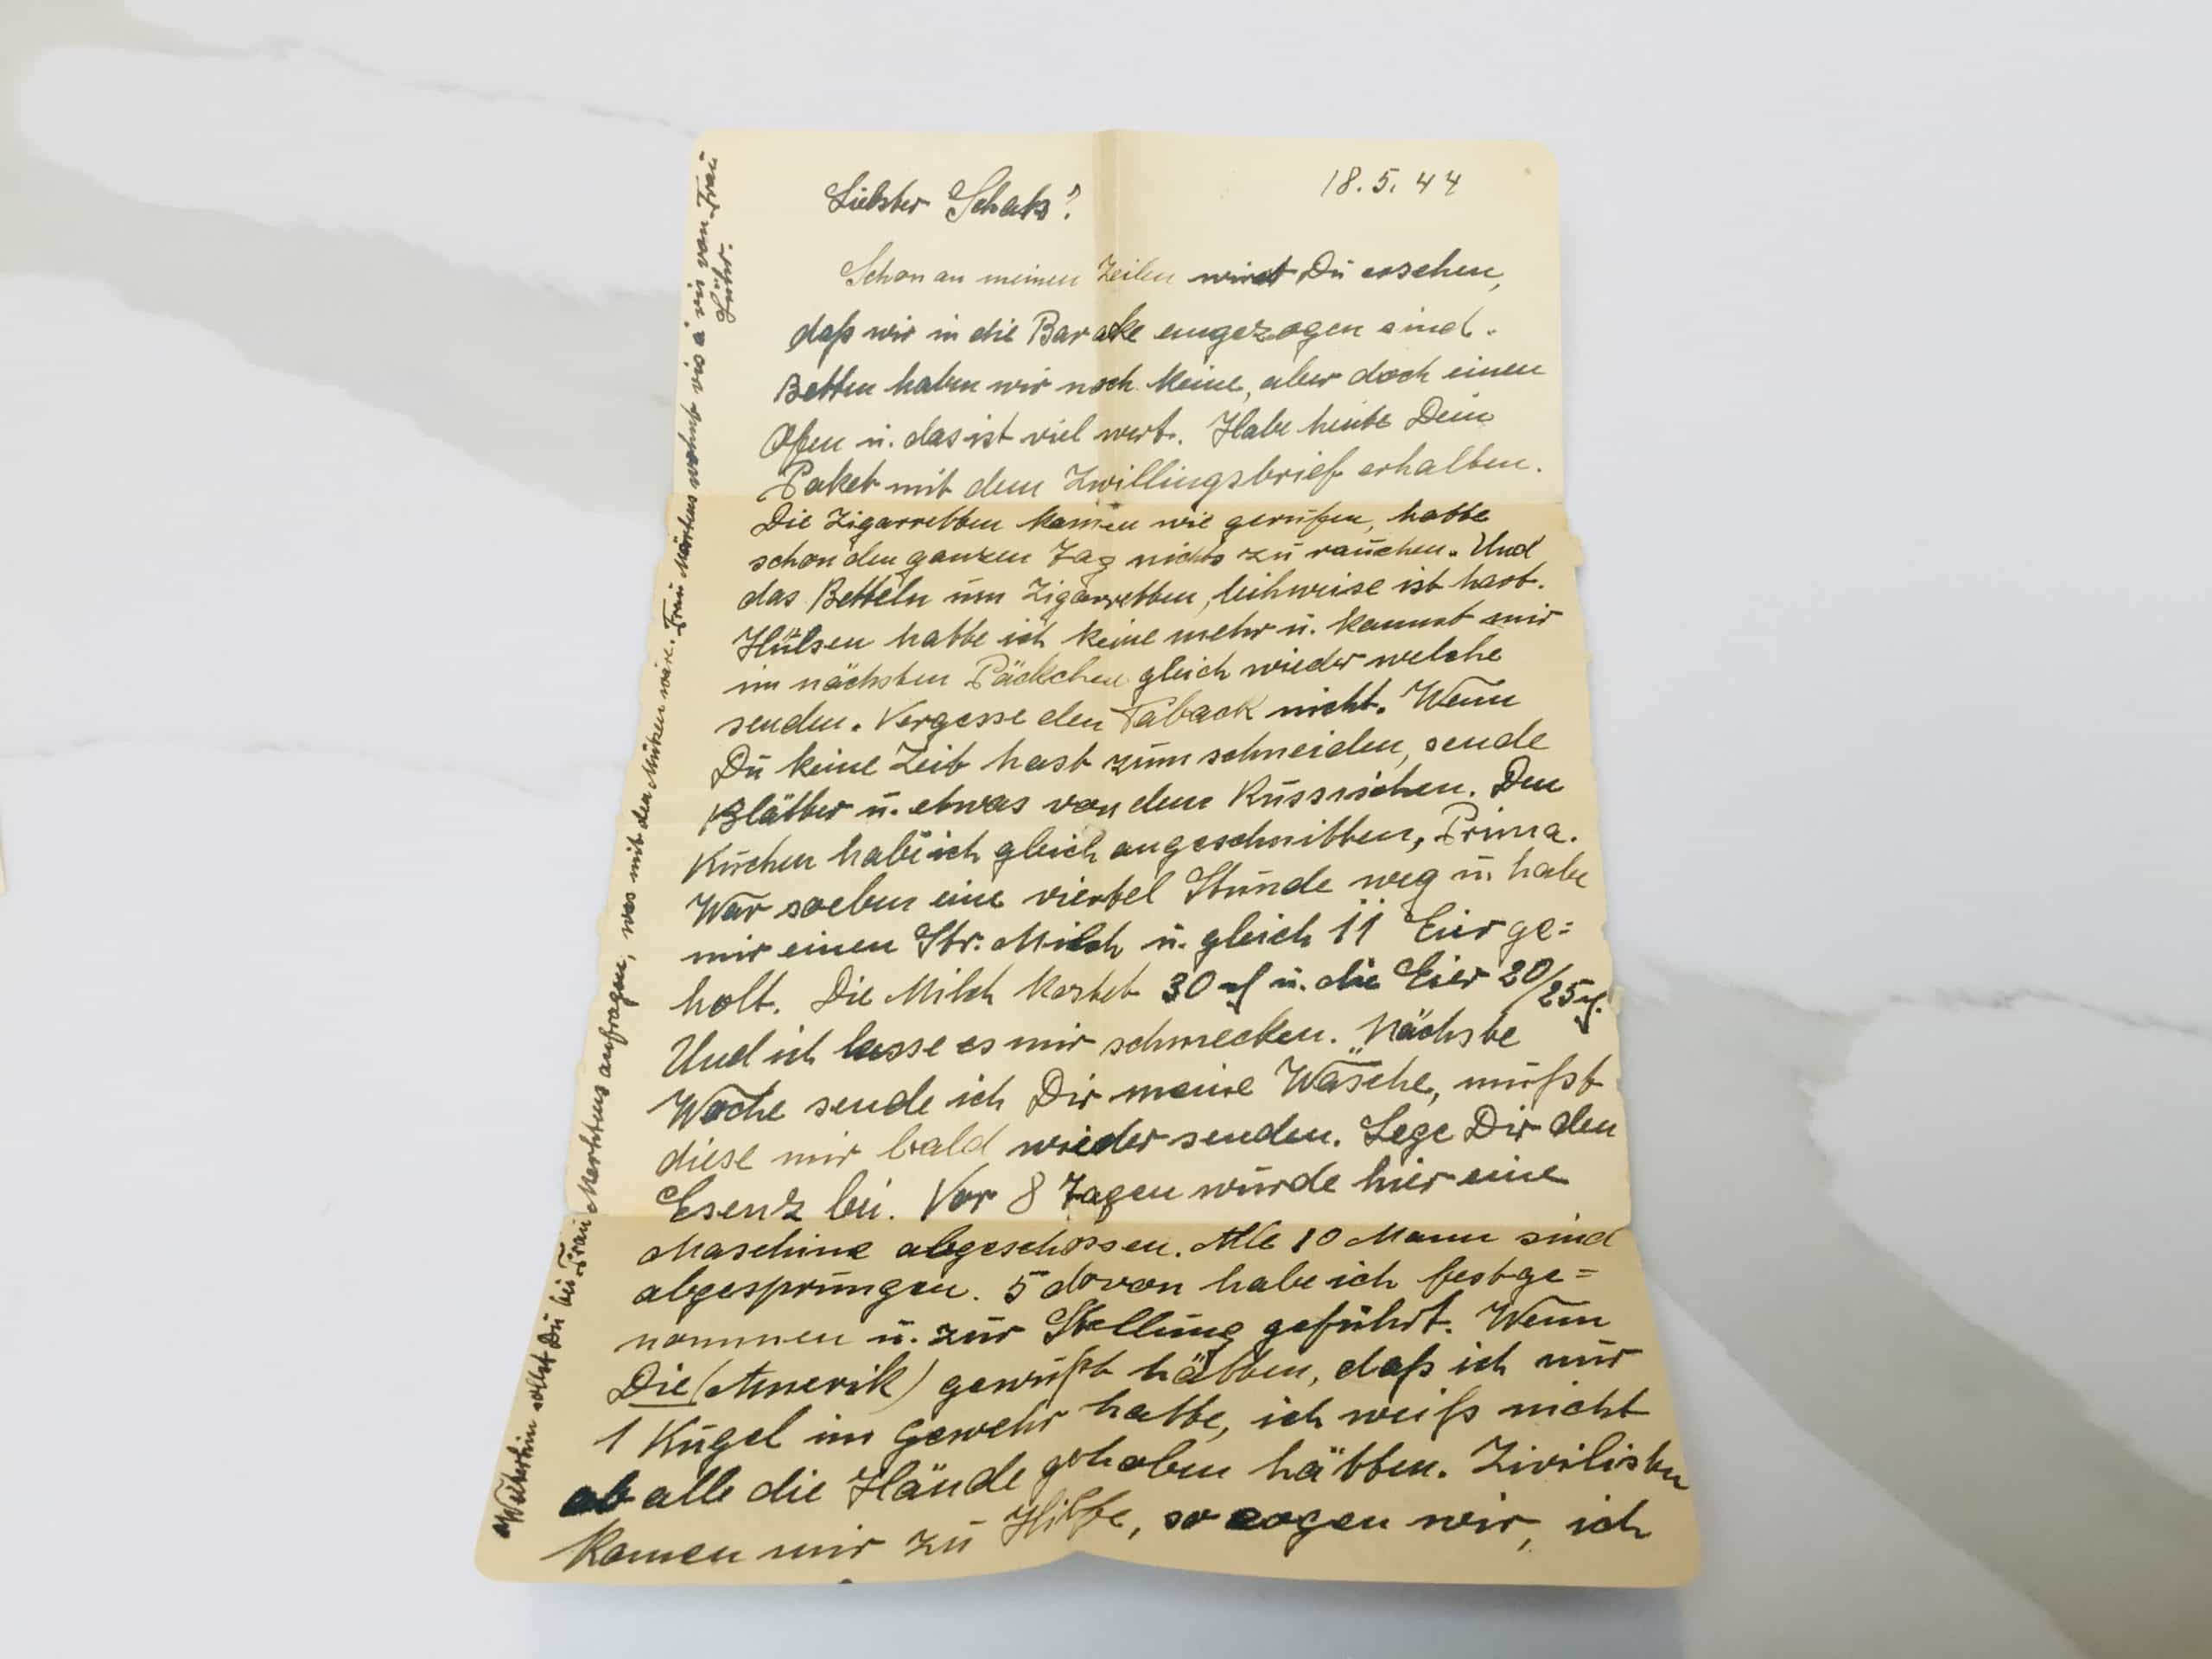 18.5.44
Liebster Schatz!
Schon an meinen Zeilen wirst Du ersehen,
daß wir in die Baracke eingezogen sind.
Betten haben wir noch keine, aber doch einen
Ofen u. das ist viel wert. Habe heute Dein
Paket mit dem Zwillingsbrief erhalten.
Die Zigarretten kamen wie gerufen, hatte
schon den ganzen Tag nichts zu rauchen. Und
das Betteln um Zigarretten, leihweise ist hart.
Hülsen hatte ich keine mehr u. kannst mir
im nächsten Päckchen gleich wieder welche
senden. Vergesse den Taback nicht. Wenn
Du keine Zeit hast zum schneiden, sende
Blätter u. etwas von dem Russischen. Den
Kuchen habe ich gleich angeschnitten, Prima.
War soeben eine viertel Stunde weg u. habe
mir einen Ltr. Milch u. gleich 11 Eier ge=
holt. Die Milch kostet 30 ₰ u. die Eier 20/25 ₰.
Und ich lasse es mir schmecken. Nächste
Woche sende ich Dir meine Wäsche, mußt
diese mir bald wieder senden. Lege Dir den
Esenz bei. Vor 8 Tagen wurde hier eine
Maschine abgeschossen. Alle 10 Mann sind
abgesprungen. 5 davon habe ich festge=
nommen u. zur Stellung geführt. Wenn
Die (Amerik) gewußt hätten, daß ich nur
1 Kugel im Gewehr hatte, ich weiß nicht
ob alle die Hände gehoben hätten. Zivilisten
kamen mir zu Hilfe, so zogen wir, ich
Weiterhin sollst Du bei Frau Merhtens anfragen, was mit den Mützen wäre. Frau Märtens wohnt vis á vis von Frau